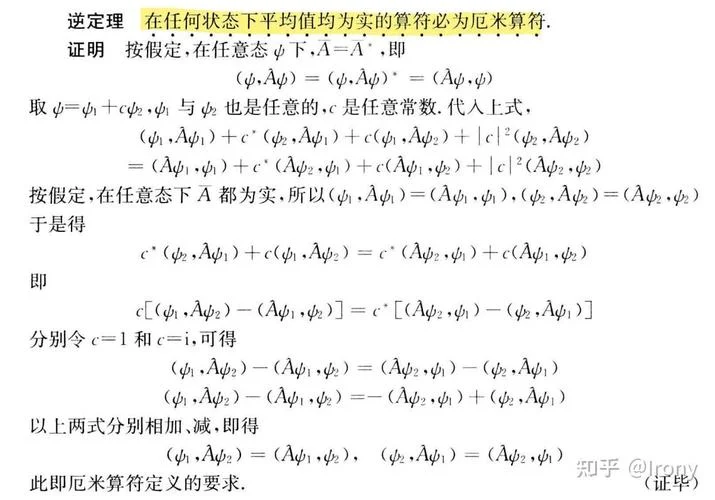 逆定理 在任何状态下平均值均为实的算符必为厄米算符.
证明 按假定,在任意态 ψ 下,A̅=A̅*,即
(ψ,Âψ) = (ψ,Âψ)* = (Âψ,ψ)
取 ψ=ψ₁+cψ₂,ψ₁ 与 ψ₂ 也是任意的,c 是任意常数.代入上式,
(ψ₁,Âψ₁)+c*(ψ₂,Âψ₁)+c(ψ₁,Âψ₂)+|c|²(ψ₂,Âψ₂)
=(Âψ₁,ψ₁)+c*(Âψ₂,ψ₁)+c(Âψ₁,ψ₂)+|c|²(Âψ₂,ψ₂)
按假定,在任意态下 A̅ 都为实,所以(ψ₁,Âψ₁)=(Âψ₁,ψ₁),(ψ₂,Âψ₂)=(Âψ₂,ψ₂)
于是得
c*(ψ₂,Âψ₁)+c(ψ₁,Âψ₂) = c*(Âψ₂,ψ₁)+c(Âψ₁,ψ₂)
即
c[(ψ₁,Âψ₂)−(Âψ₁,ψ₂)] = c*[(Âψ₂,ψ₁)−(ψ₂,Âψ₁)]
分别令 c=1 和 c=i,可得
(ψ₁,Âψ₂)−(Âψ₁,ψ₂) = (Âψ₂,ψ₁)−(ψ₂,Âψ₁)
(ψ₁,Âψ₂)−(Âψ₁,ψ₂) =−(Âψ₂,ψ₁)+(ψ₂,Âψ₁)
以上两式分别相加、减,即得
(ψ₁,Âψ₂) = (Âψ₁,ψ₂), (ψ₂,Âψ₁) = (Âψ₂,ψ₁)
此即厄米算符定义的要求. (证毕)
知乎 @Irony